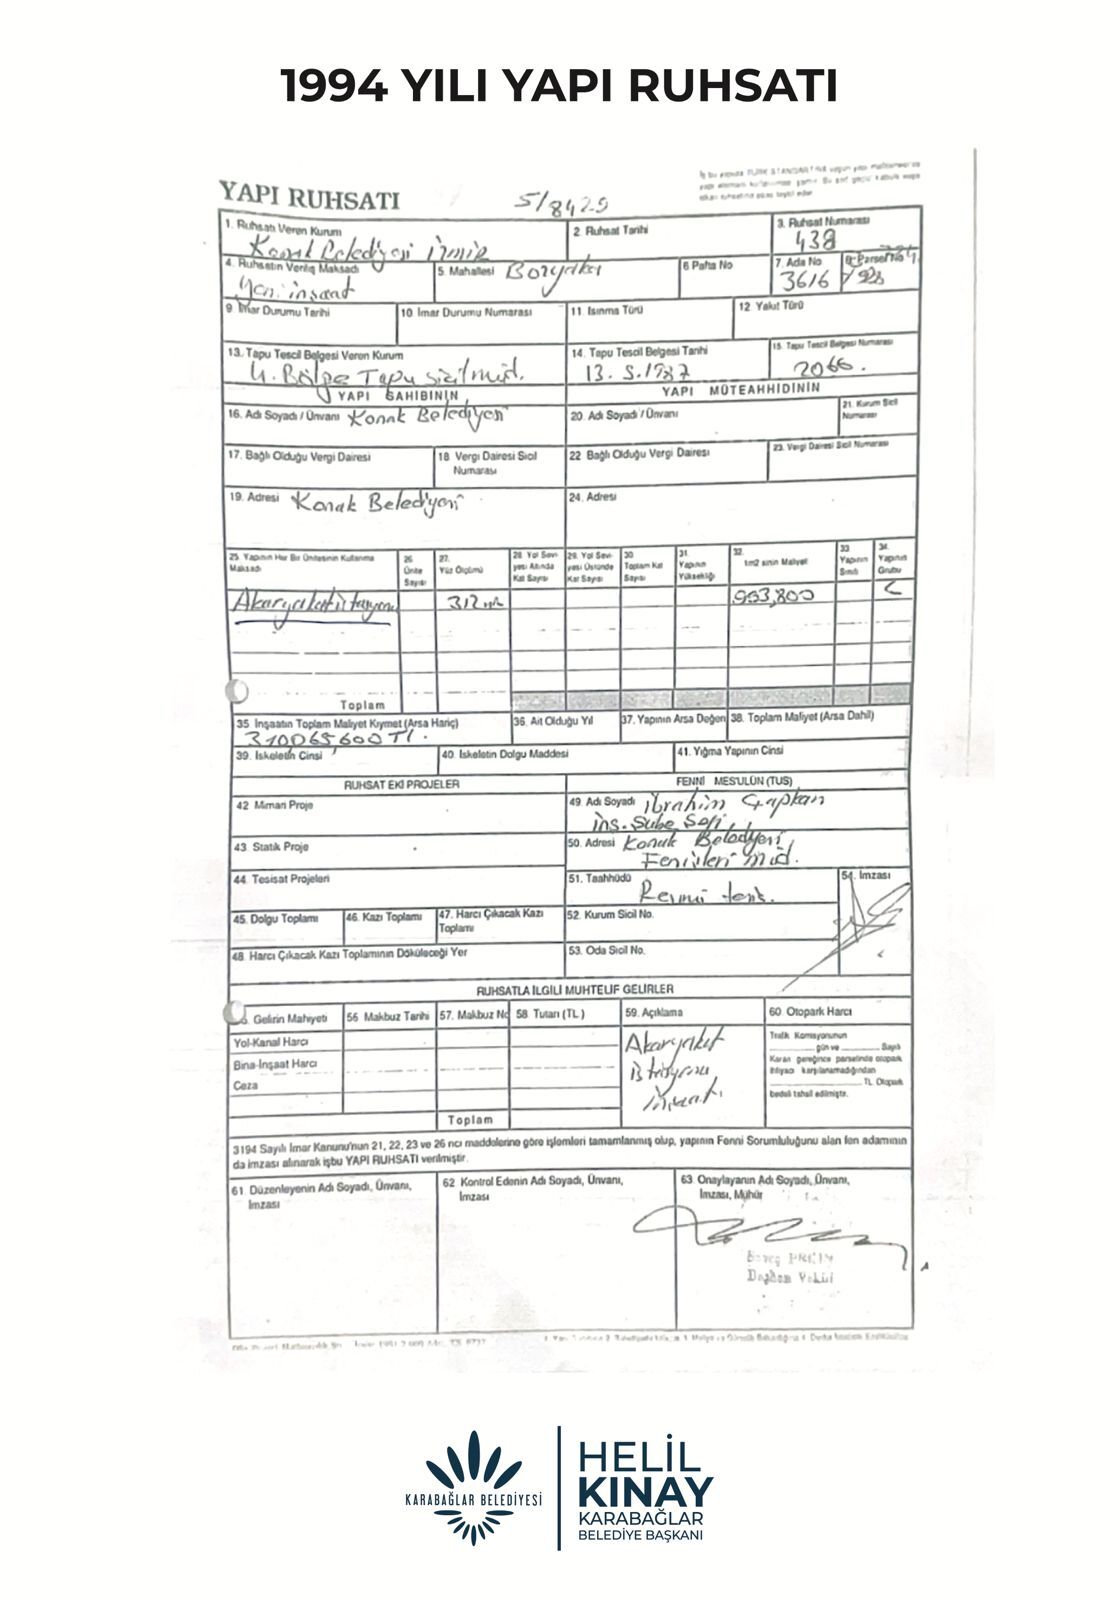 1994 YILI YAPI RUHSATI
YAPI RUHSATI
5/8429
1. Ruhsatı Veren Kurum
Konak Belediyesi İzmir
2. Ruhsat Tarihi
3. Ruhsat Numarası
438
4. Ruhsatın Veriliş Maksadı
Yeni inşaat
5. Mahallesi Bozyaka
6 Pafta No
7. Ada No
3616
8. Parsel No
9. İmar Durumu Tarihi
10. İmar Durumu Numarası
11. Isınma Türü
12 Yakıt Türü
13. Tapu Tescil Belgesi Veren Kurum
4. Bölge Tapu Sicil Müd.
14. Tapu Tescil Belgesi Tarihi
13.5.1987
15. Tapu Tescil Belgesi Numarası
2066.
YAPI SAHİBİNİN
YAPI MÜTEAHHİDİNİN
16. Adı Soyadı / Ünvanı Konak Belediyesi
20. Adı Soyadı / Ünvanı
21. Kurum Sicil Numarası
17. Bağlı Olduğu Vergi Dairesi
18 Vergi Dairesi Sicil Numarası
22 Bağlı Olduğu Vergi Dairesi
23. Vergi Dairesi Sicil Numarası
19. Adresi Konak Belediyesi
24. Adresi
25. Yapının Her Bir Ünitesinin Kullanma Maksadı
26 Ünite Sayısı
27. Yüz Ölçümü
28. Yol Seviyesi Altında Kat Sayısı
29. Yol Seviyesi Üstünde Kat Sayısı
30. Toplam Kat Sayısı
31. Yapının Yüksekliği
32. 1m2 sinin Maliyeti
33. Yapının Sınıfı
34. Yapının Grubu
Akaryakıt istasyonu
312 m2
993,800
C
Toplam
35 İnşaatın Toplam Maliyet Kıymet (Arsa Hariç)
310065,600 TL.
36. Ait Olduğu Yıl
37. Yapının Arsa Değeri
38. Toplam Maliyet (Arsa Dahil)
39. İskeletin Cinsi
40. İskeletin Dolgu Maddesi
41. Yığma Yapının Cinsi
RUHSAT EKİ PROJELER
FENNİ MES'ULÜN (TUS)
42 Mimari Proje
49. Adı Soyadı İbrahim Çapkan
İnş. Şube Şefi
43. Statik Proje
50. Adresi Konak Belediyesi
Fenişleri Müd.
44. Tesisat Projeleri
51. Taahhüdü
54. İmzası
45. Dolgu Toplamı
46. Kazı Toplamı
47. Harcı Çıkacak Kazı Toplamı
52. Kurum Sicil No.
48. Harcı Çıkacak Kazı Toplamının Döküleceği Yer
53. Oda Sicil No.
RUHSATLA İLGİLİ MUHTELİF GELİRLER
Gelirin Mahiyeti
56 Makbuz Tarihi
57. Makbuz No
58. Tutarı (TL)
59. Açıklama
60. Otopark Harcı
Yol-Kanal Harcı
Bina-İnşaat Harcı
Ceza
Akaryakıt
istasyonu
inşaatı
Trafik Komisyonunun
gün ve Sayılı
Kararı gereğince parselinde otopark
ihtiyacı karşılanamadığından
TL Otopark
bedeli tahsil edilmiştir.
Toplam
3194 Sayılı İmar Kanunu'nun 21, 22, 23 ve 26 ncı maddelerine göre işlemleri tamamlanmış olup, yapının Fenni Sorumluluğunu alan fen adamının
da imzası alınarak işbu YAPI RUHSATI verilmiştir.
61. Düzenleyenin Adı Soyadı, Ünvanı,
İmzası
62 Kontrol Edenin Adı Soyadı, Ünvanı,
İmzası
63 Onaylayanın Adı Soyadı, Ünvanı,
İmzası, Mühür
KARABAĞLAR BELEDİYESİ
HELİL
KINAY
KARABAĞLAR
BELEDİYE BAŞKANI